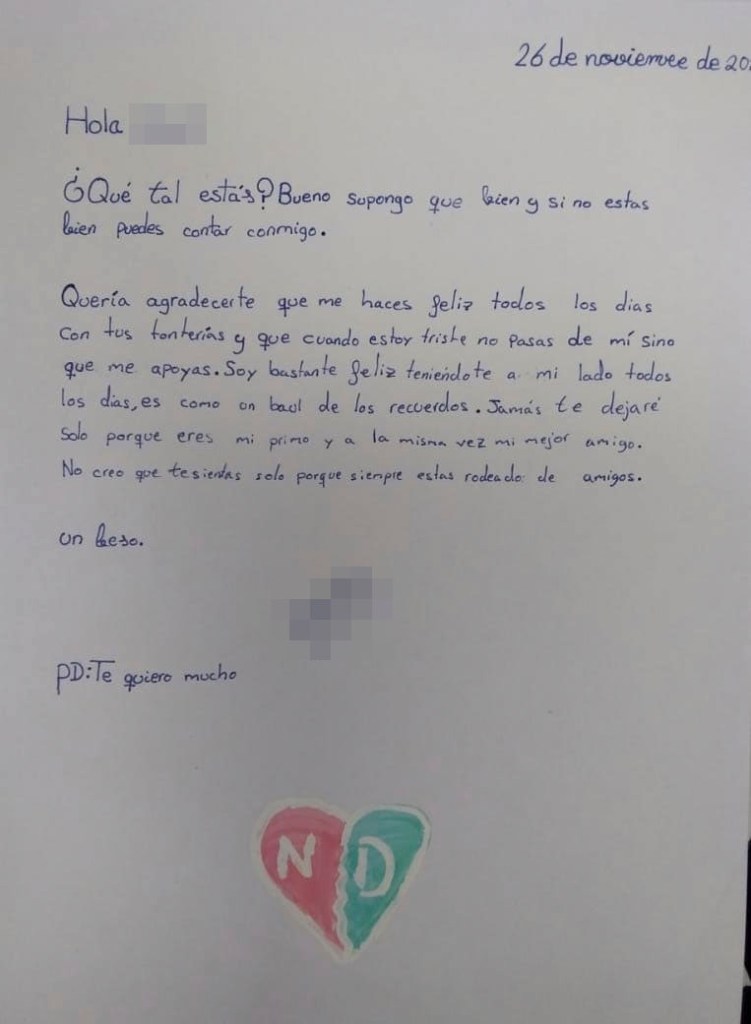 26 de noviembre de 20
Hola
¿Qué tal estás? Bueno supongo que bien y si no estas
bien puedes contar conmigo.
Quería agradecerte que me haces feliz todos los dias
con tus tonterías y que cuando estoy triste no pasas de mí sino
que me apoyas. Soy bastante feliz teniendote a mi lado todos
los dias, es como un baul de los recuerdos. Jamás te dejaré
solo porque eres mi primo y a la misma vez mi mejor amigo.
No creo que te sientas solo porque siempre estas rodeado de amigos.
un beso.
PD: Te quiero mucho
N D